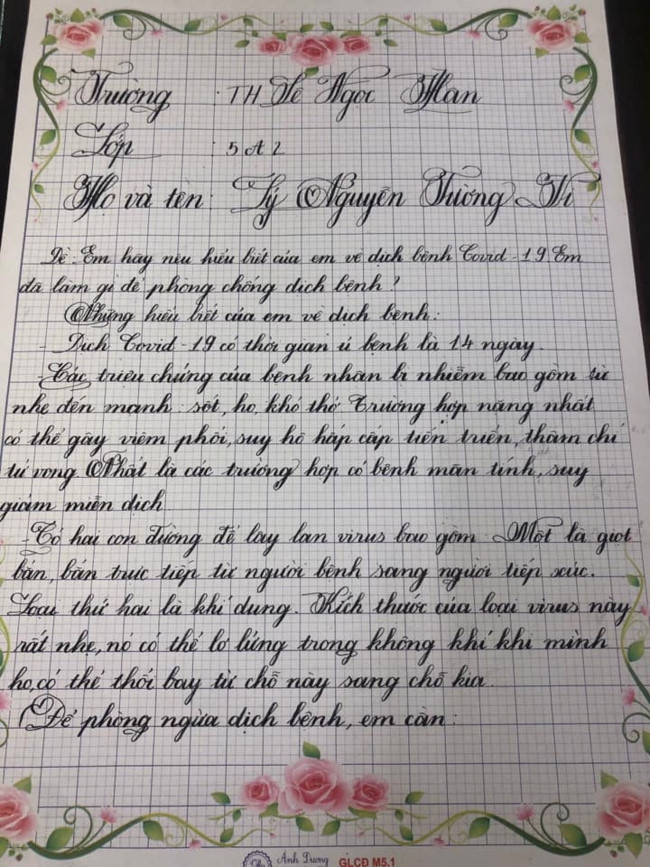 Trường : TH Lê Ngọc Hân
Lớp : 5A2
Họ và tên: Lý Nguyễn Tường Vi
Đề: Em hãy nêu hiểu biết của em về dịch bệnh Covid-19. Em
đã làm gì để phòng chống dịch bệnh?
Những hiểu biết của em về dịch bệnh:
- Dịch Covid-19 có thời gian ủ bệnh là 14 ngày.
- Các triệu chứng của bệnh nhân bị nhiễm bao gồm từ
nhẹ đến mạnh: sốt, ho, khó thở. Trường hợp nặng nhất
có thể gây viêm phổi, suy hô hấp cấp tiến triển, thậm chí
tử vong. Nhất là các trường hợp có bệnh mãn tính, suy
giảm miễn dịch.
- Có hai con đường để lây lan virus bao gồm. Một là giọt
bắn, bắn trực tiếp từ người bệnh sang người tiếp xúc.
Loại thứ hai là khí dung. Kích thước của loại virus này
rất nhẹ, nó có thể lơ lửng trong không khí khi mình
ho, có thể thổi bay từ chỗ này sang chỗ kia.
Để phòng ngừa dịch bệnh, em cần:
Ánh Dương GLCĐ M5.1